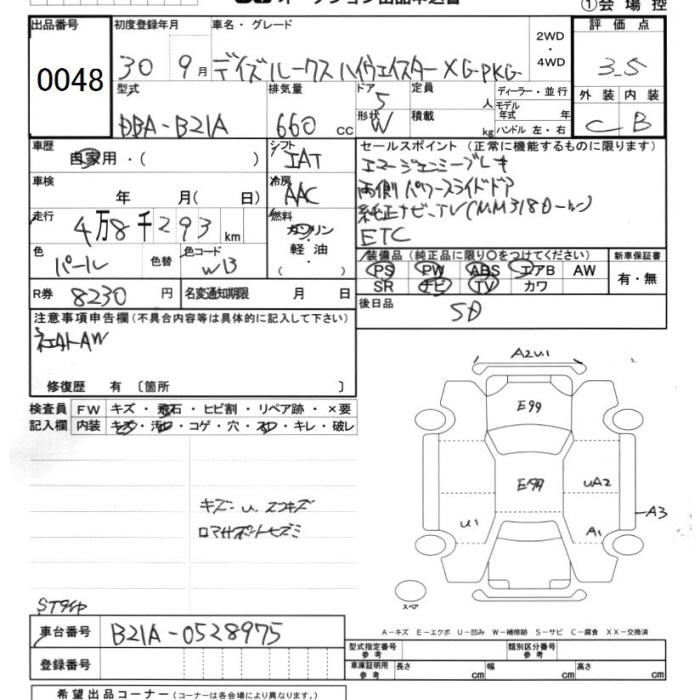 ①会場控
出品番号 初度登録年月 車名・グレード 2WD・4WD 評価点
0048 30 9月 デイズルークス ハイウェイスター X G-PKG 3.5
型式 排気量 ドア 形状 定員 人 積載 kg ディーラー・並行 モデル年式 年 ハンドル 左・右 外装 内装
DBA-B21A 660cc 5 W C B
車歴 自家用・( ) シフト IAT
車検 年 月(日) 冷房 AAC
走行 4万8千293km 燃料 ガソリン 軽油・( )
色 パール 色替 色コード W13
R券 8230円 名変通知期限 月 日
セールスポイント(正常に機能するものに限ります)
エマージェンシーブレーキ
両側パワースライドドア
純正ナビ、TV(MM318D-W)
ETC
装備品(純正品に限り○をつけてください) 新車保証書
PS PW ABS エアB AW 有・無
SR ナビ TV カワ
後日品 SD
注意事項申告欄(不具合内容等は具体的に記入して下さい)
AW
修復歴 有〔箇所 〕
検査員 FW キズ・飛石・ヒビ割・リペア跡・×要
記入欄 内装 キズ・汚れ・コゲ・穴・スレ・キレ・破レ
キズ・U、スコキズ
A2U1
E99
E199
UA2
A3
U1
A1
スペア
STタイヤ
車台番号 B21A-0528975
登録番号
A-キズ E-エクボ U-凹み W-補修跡 S-サビ C-腐食 XX-交換済
型式指定番号 参考 類別区分番号 参考
車庫証明用 参考 長さ cm 幅 cm 高さ cm
希望出品コーナー(コーナーは各会場により異なります。)